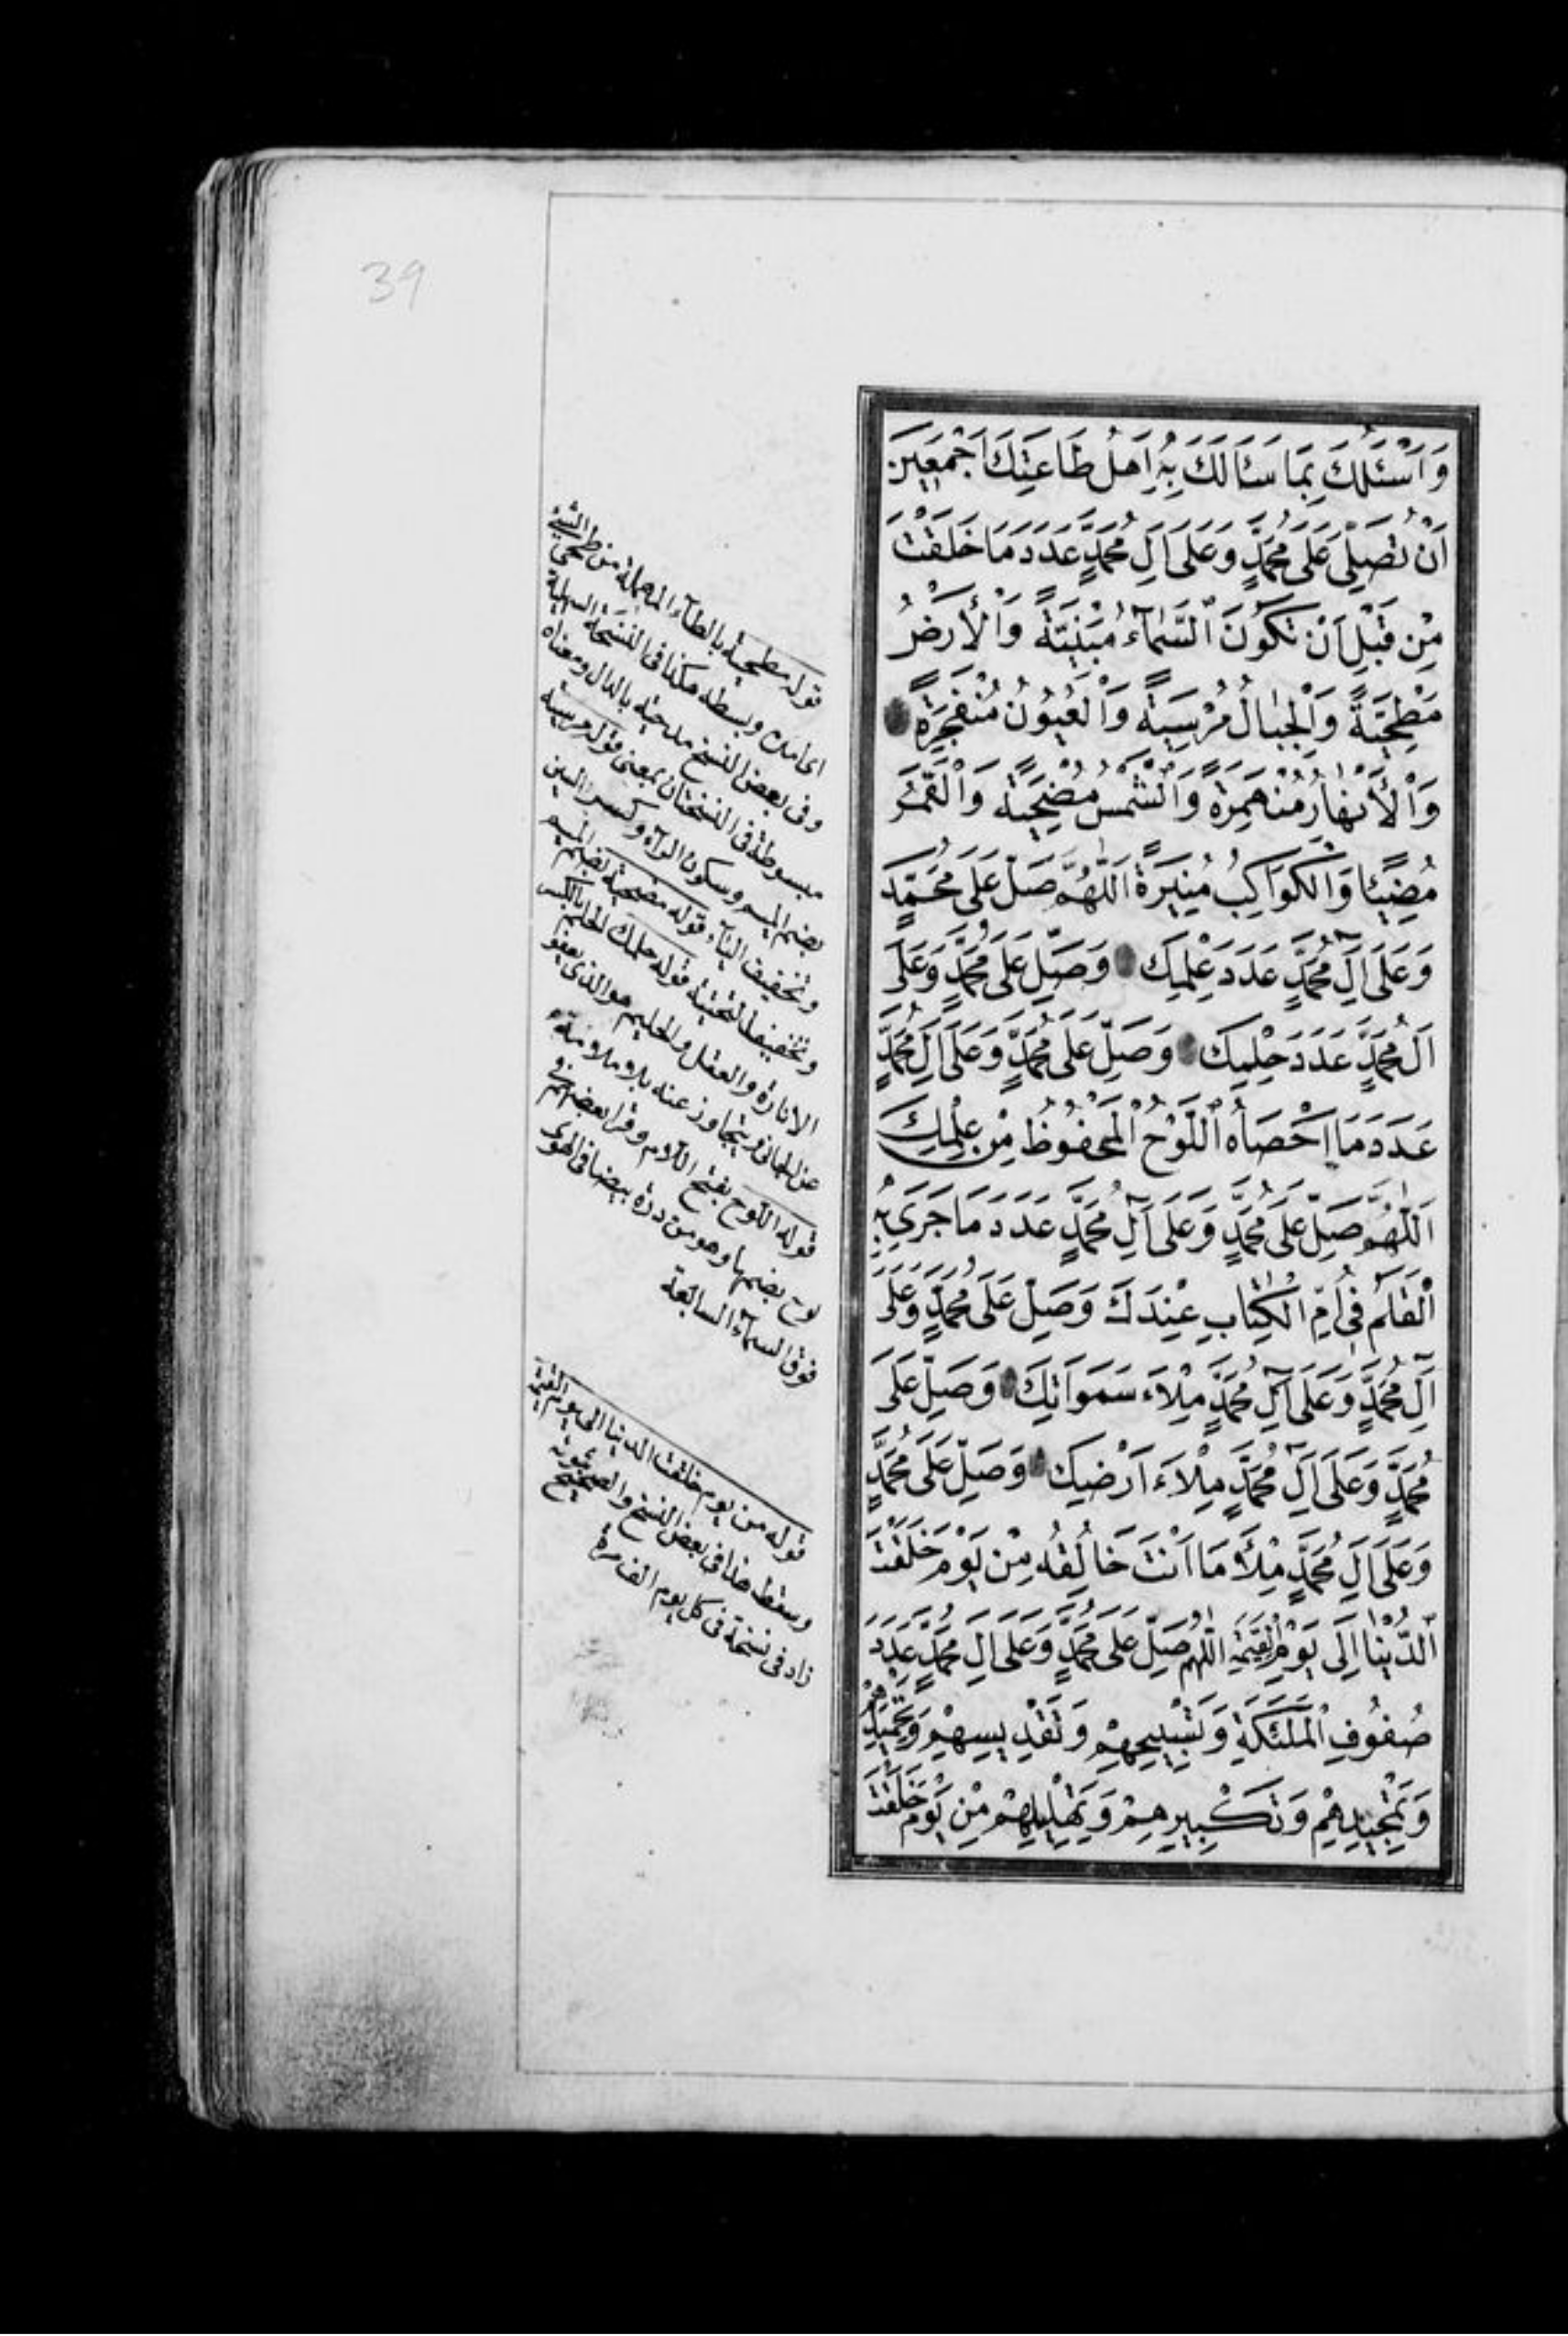 39
وَاَسْئَلُكَ بِمَا سَئَالَكَ بِهِ اَهْلُ طَاعَتِكَ اَجْمَعِينَ
اَنْ تُصَلِّيَ عَلَى مُحَمَّدٍ وَعَلَى اَلِ مُحَمَّدٍ عَدَدَ مَا خَلَقْتَ
مِنْ قَبْلِ اَنْ تَكُونَ السَّمَآءُ مَبْنِيَّةً وَالْأَرْضُ
مَطْحِيَّةً وَالْجِبَالُ مُرْسِيَةً وَالْعُيُونُ مُنْفَجِرَةً
وَالْأَنْهَارُ مُنْهَمِرَةً وَالشَّمْسُ مُضْحِيَةً وَالْقَمَرُ
مُضِيئًا وَالْكَوَاكِبُ مُنِيرَةً اَللّٰهُمَّ صَلِّ عَلَى مُحَمَّدٍ
وَعَلَى اَلِ مُحَمَّدٍ عَدَدَ عِلْمِكَ وَصَلِّ عَلَى مُحَمَّدٍ وَعَلَى
اَلِ مُحَمَّدٍ عَدَدَ حِلْمِكَ وَصَلِّ عَلَى مُحَمَّدٍ وَعَلَى اَلِ مُحَمَّدٍ
عَدَدَ مَا اَحْصَاهُ اللَّوْحُ الْمَحْفُوظُ مِنْ عِلْمِكَ
اَللّٰهُمَّ صَلِّ عَلَى مُحَمَّدٍ وَعَلَى اٰلِ مُحَمَّدٍ عَدَدَ مَا جَرَى بِهِ
الْقَلَمُ فِي اُمِّ الْكِتَابِ عِنْدَكَ وَصَلِّ عَلَى مُحَمَّدٍ وَعَلَى
اٰلِ مُحَمَّدٍ وَعَلَى اٰلِ مُحَمَّدٍ مِلْاَءَ سَمَوَاتِكَ وَصَلِّ عَلَى
مُحَمَّدٍ وَعَلَى اٰلِ مُحَمَّدٍ مِلْاَءَ اَرْضِكَ وَصَلِّ عَلَى مُحَمَّدٍ
وَعَلَى اَلِ مُحَمَّدٍ مِلْأَ مَا اَنْتَ خَالِقُهُ مِنْ يَوْمِ خَلَقْتَ
الدُّنْيَا اِلَى يَوْمِ الْقِيٰمَةِ اَللّٰهُمَّ صَلِّ عَلَى مُحَمَّدٍ وَعَلَى اَلِ مُحَمَّدٍ عَدَدَ
صُفُوفِ الْمَلٰئِكَةِ وَتَسْبِيحِهِمْ وَتَقْدِيسِهِمْ وَتَحْمِيدِهِمْ
وَتَمْجِيدِهِمْ وَتَكْبِيرِهِمْ وَتَهْلِيلِهِمْ مِنْ يَوْمِ خَلَقْتَ
قوله مطحية بالطآء المهملة من طحى الشئ
اى مده وبسطه هكذا فى النسخة السهلية
وفى بعض النسخ مدحية بالدال ومعناه
مبسوطة فى النسختان بمعنى قوله مرسية
بضم الميم وسكون الرآء وكسر السين
وتخفيف اليآء قوله مضحية بضم الميم
وتخفيف التحتية قوله حلمك الحلم بالكسر
الاناءة والعقل والحليم هو الذى يعفو
عن الجانى ويتجاوز عنه بلا ملامة
قوله اللوح بفتح اللام وقرا بعضهم فى
لوح بضمها وهو من درة بيضا فى الهوى
فوق السمآء السابعة
قوله من يوم خلقت الدنيا الى يوم القيمة
وسقط هذا فى بعض النسخ والصحيح ثبوته
زاد فى نسخة فى كل يوم الف مرة